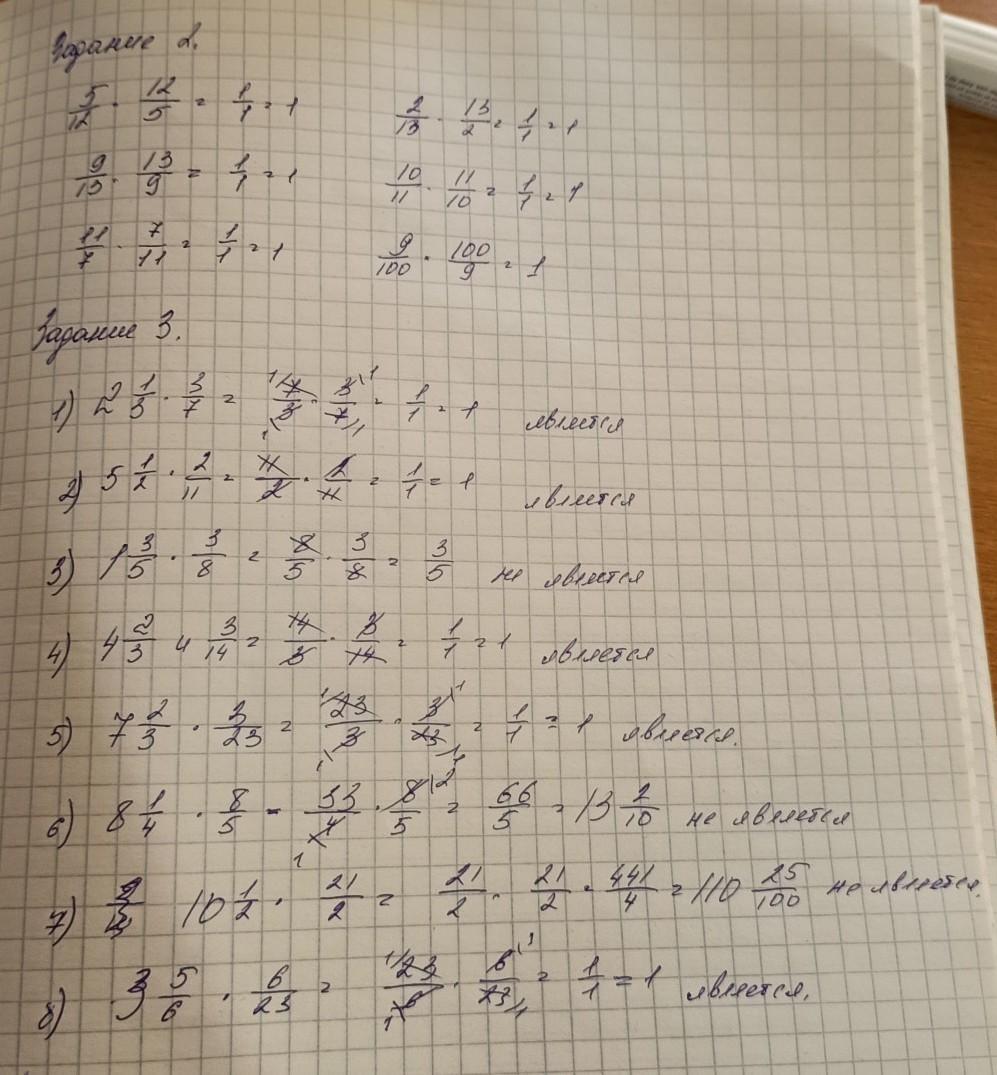 Задание 2.
5/12 · 12/5 = 1/1 = 1    2/13 · 13/2 = 1/1 = 1
9/13 · 13/9 = 1/1 = 1    10/11 · 11/10 = 1/1 = 1
11/7 · 7/11 = 1/1 = 1    9/100 · 100/9 = 1
Задание 3.
1) 2 1/3 · 3/7 = 7/3 · 3/7 = 1/1 = 1 является
2) 5 1/2 · 2/11 = 11/2 · 2/11 = 1/1 = 1 является
3) 1 3/5 · 3/8 = 8/5 · 3/8 = 3/5 не является
4) 4 2/3 и 3/14 = 14/3 · 3/14 = 1/1 = 1 является
5) 7 2/3 · 3/23 = 23/3 · 3/23 = 1/1 = 1 является.
6) 8 1/4 · 8/5 = 33/4 · 8/5 = 66/5 = 13 2/10 не является
7) 10 1/2 · 21/2 = 21/2 · 21/2 · 441/4 = 110 25/100 не является.
8) 3 5/6 · 6/23 = 23/6 · 6/23 = 1/1 = 1 является.